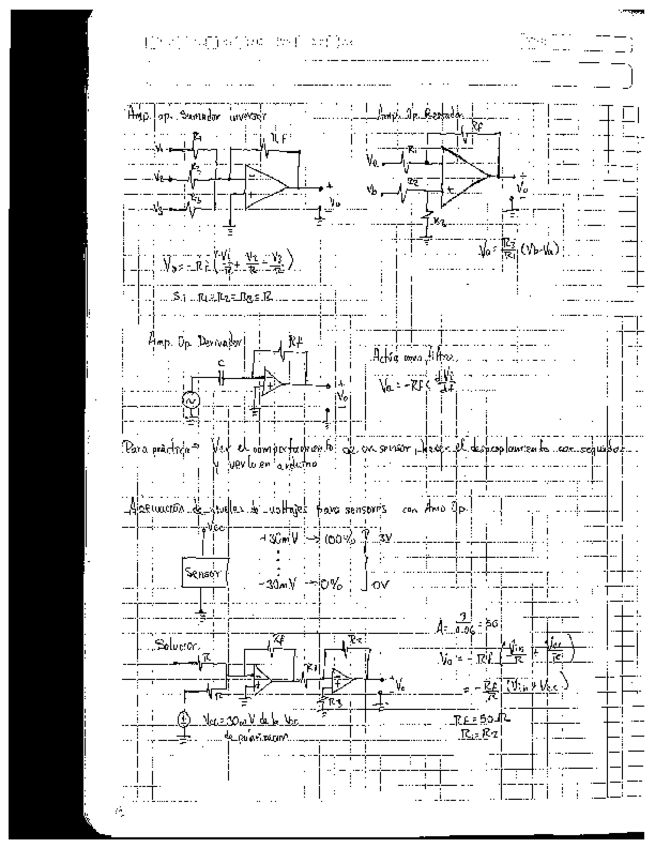 Amp. op. Sumador inversor
R1
RF
V1
V2
R2
V3
R3
+
Vo
-
Vo = -RF (V1/R + V2/R + V3/R)
Si R1 = R2 = R3 = R
Amp. Op. Restador
RF
R1
Va
Vb
R2
R2
+
Vo
-
Vo = R2/R1 (Vb-Va)
Amp. Op. Derivador
RF
C
+
Vo
-
Actúa como filtro
Vo = -RFC dVi/dt
Para práctica → Ver el comportamiento de un sensor, hacer el desacoplamiento con seguidor
y verlo en arduino
Adecuación de niveles de voltajes para sensores con Amp Op.
Vcc
Sensor
+30mV → 100% 3V
-30mV → 0% 0V
Solución
R
R
RF
R1
R2
R3
Vo
Vcc = 30mV de la Vcc
de polarización
A = 3/0.06 = 50
Vo = - RF (Vin/R + Vcc/R)
= - RF/R (Vin + Vcc)
RF = 50 R
R1 = R2